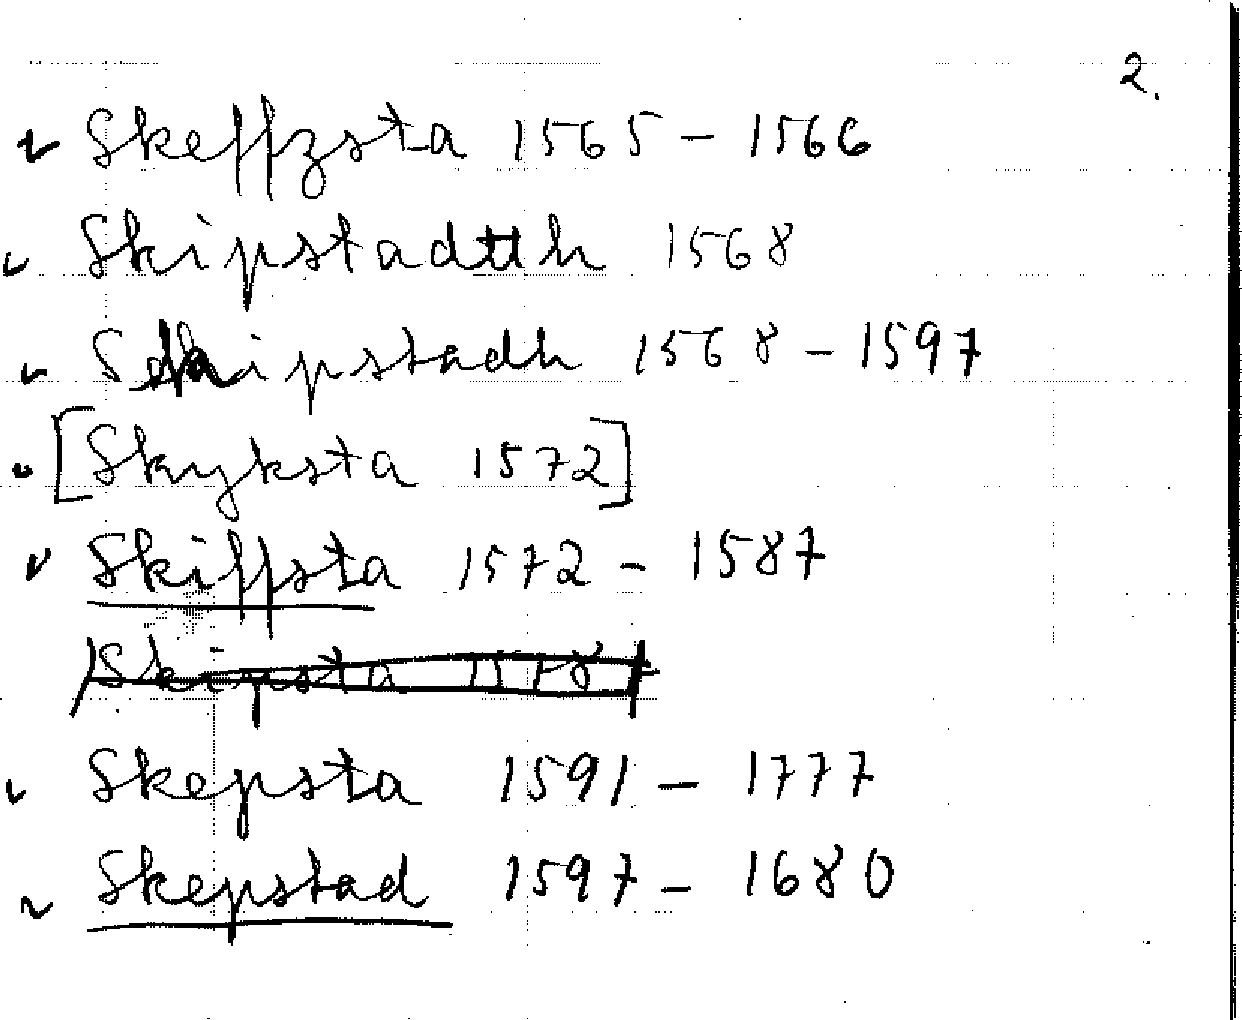 2.
Skeffzsta 1565 - 1566
Skipstadtth 1568
Skipstadh 1568 - 1597
[Skyksta 1572]
Skiffsta 1572 - 1587
Skipsta
Skepsta 1591 - 1777
Skepstad 1597 - 1680